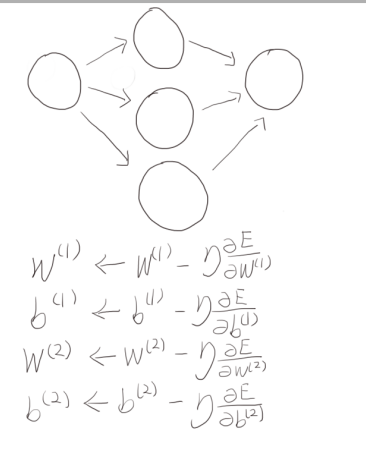 W⁽¹⁾ ← W⁽¹⁾ − η ∂E/∂W⁽¹⁾
b⁽¹⁾ ← b⁽¹⁾ − η ∂E/∂b⁽¹⁾
W⁽²⁾ ← W⁽²⁾ − η ∂E/∂W⁽²⁾
b⁽²⁾ ← b⁽²⁾ − η ∂E/∂b⁽²⁾